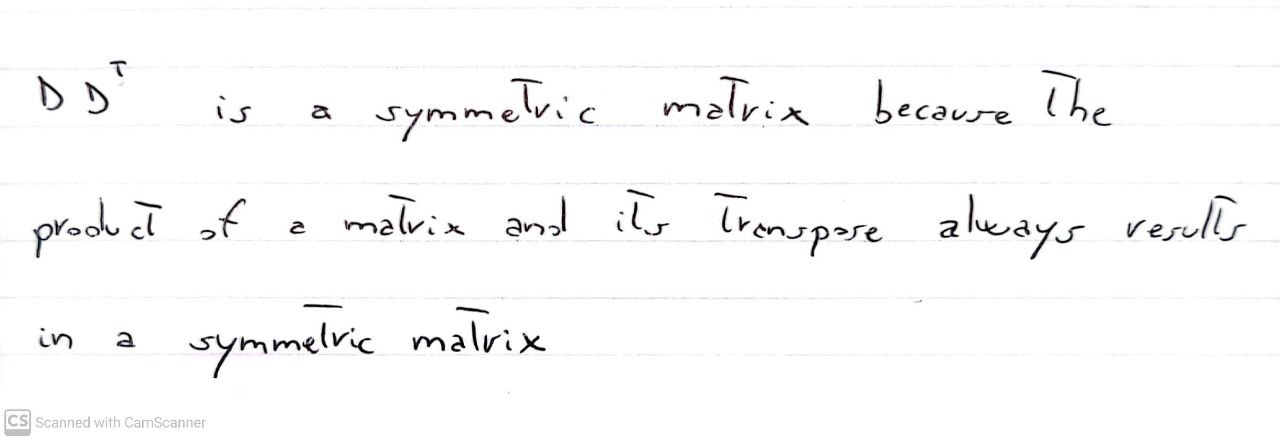 D D^T is a symmetric matrix because the
product of a matrix and its transpose always results
in a symmetric matrix
CS Scanned with CamScanner